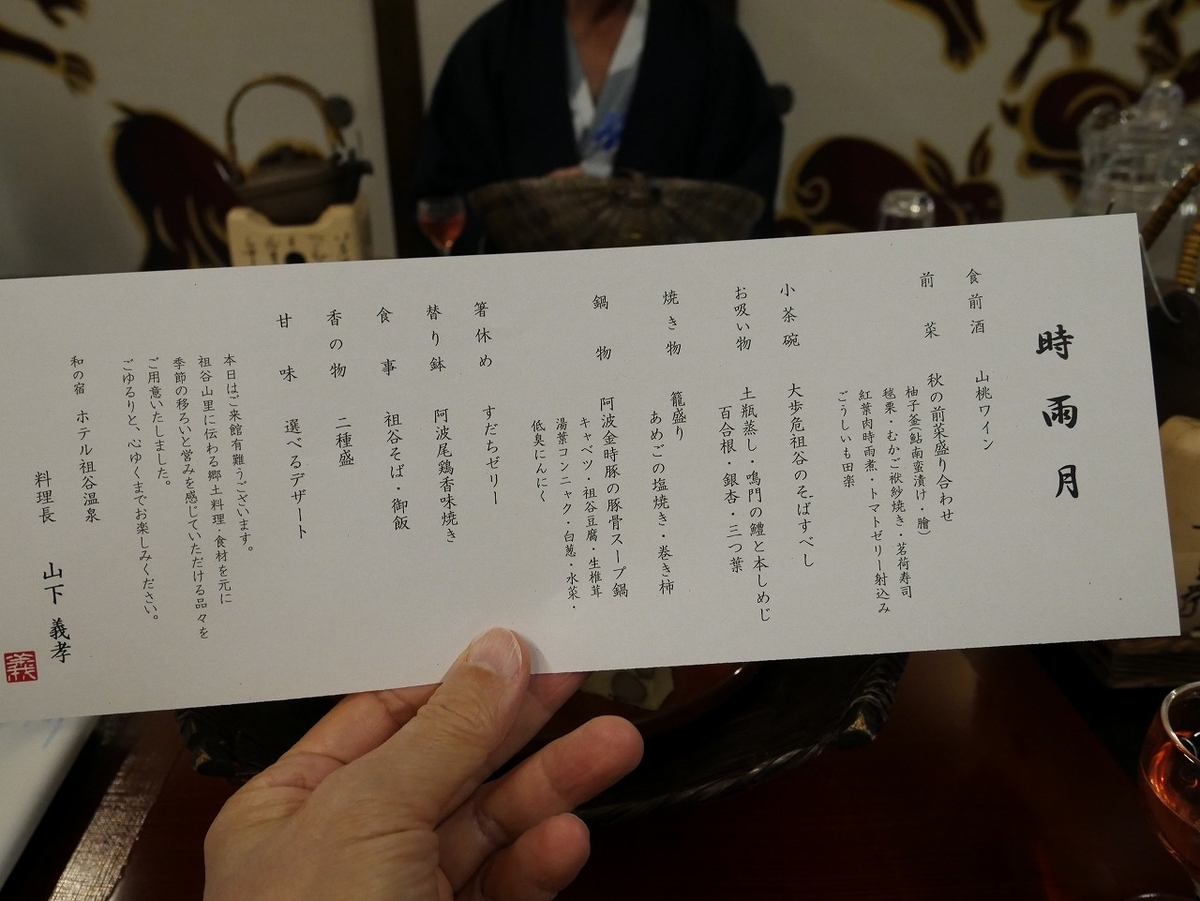 時雨月
食前酒 山桃ワイン
前菜 秋の前菜盛り合わせ
柚子釜(鮎南蛮漬け・膾)
毬栗・むかご袱紗焼き・茗荷寿司
紅葉肉時雨煮・トマトゼリー射込み
ごうしいも田楽
小茶碗 大歩危祖谷のそばすべし
お吸い物 土瓶蒸し・鳴門の鱧と本しめじ
百合根・銀杏・三つ葉
焼き物 籠盛り
あめごの塩焼き・巻き柿
鍋物 阿波金時豚の豚骨スープ鍋
キャベツ・祖谷豆腐・生椎茸
湯葉コンニャク・白葱・水菜・
低臭にんにく
箸休め すだちゼリー
替り鉢 阿波尾鶏香味焼き
食事 祖谷そば・御飯
香の物 二種盛
甘味 選べるデザート
本日はご来館有難うございます。
祖谷山里に伝わる郷土料理・食材を元に
季節の移ろいと営みを感じていただける品々を
ご用意いたしました。
ごゆるりと、心ゆくまでお楽しみください。
和の宿 ホテル祖谷温泉
料理長 山下 義孝
義